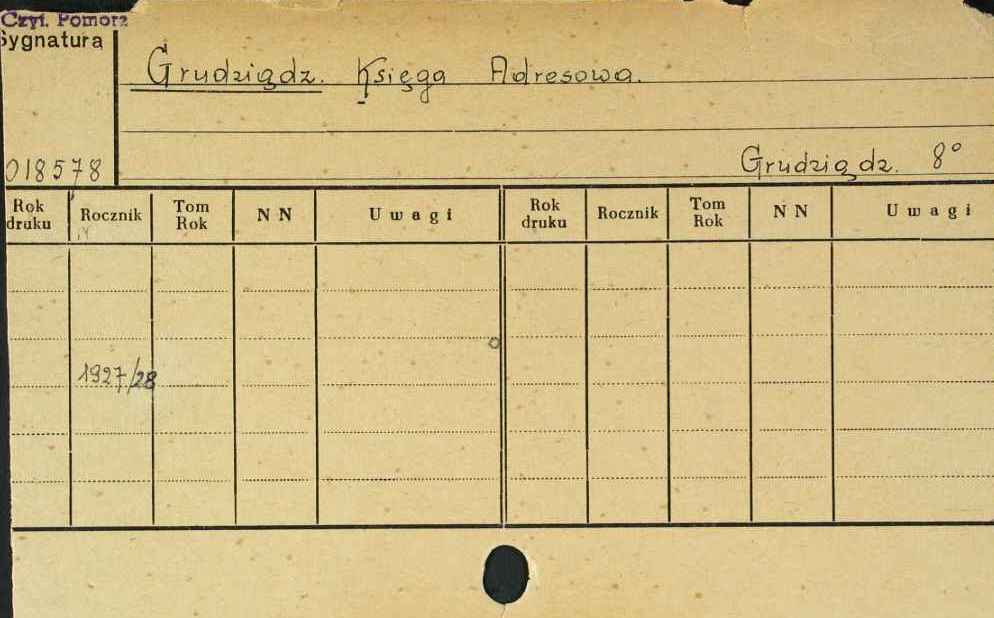 Czyt. Pomorz
Sygnatura
Grudziądz. Księga Adresowa.
018578
Grudziądz. 8°
Rok druku Rocznik Tom Rok NN Uwagi Rok druku Rocznik Tom Rok NN Uwagi
1927/28